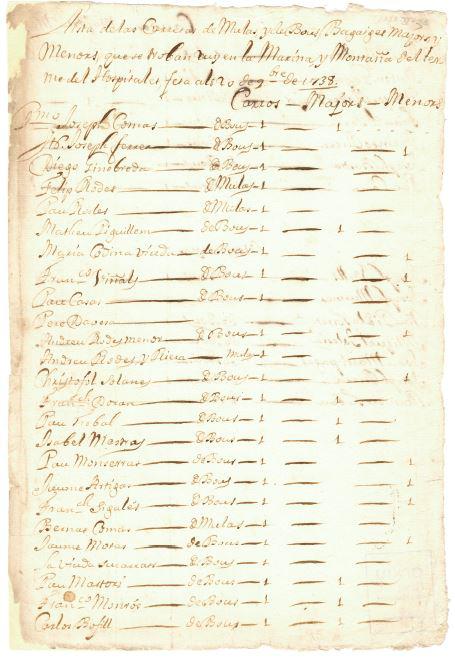 Nota de las Carretas de Mulas, y de Bous, Bagatges Majors, y
Menors, que se troban vuy en la Marina, y Montaña del ter-
me del Hospitalet fera als 20 de 9bre de 1738.
Carros — Majors — Menors
Pmo Joseph Comas — de Bous — 1 — 1 —
Joseph Ferrer — de Bous — 1 — — 1
Diego Ginebreda — de Bous — 1 — —
Felip Rodes — de Mulas — 1 — —
Pau Rodes — de Mulas — 1 — —
Matheu Piguillem — de Bous — 1 — 1 —
Maria Codina viuda — de Bous — 1 — — 1
Franco Viñals — de Bous — 1 — — 1
Pau Casas — de Bous — 1 — —
Pere
Andreu Rodes menor — de Bous — 1 — — 1
Andreu Rodes y Riera — Mulas — 1 — —
Christofol Solanes — de Bous — 1 — — 1
Doran — de Bous — 1 — 1 —
Pau — de Bous — 1 — 1 —
Isabel — de Bous — 1 — 1 —
Pau Monserrat — de Bous — 1 — — 1
Jaume Artigas — de Bous — 1 — — 1
— de Bous — 1 — — 1
Bernat Comas — de Mulas — 1 — —
Jaume — de Bous — 1 — — 1
La Viuda — de Bous — 1 — —
Pau — de Bous — 1 — 1 —
Franco Monrós — de Bous — 1 — 1 —
Carlos Bofill — de Bous — 1 — 1 —